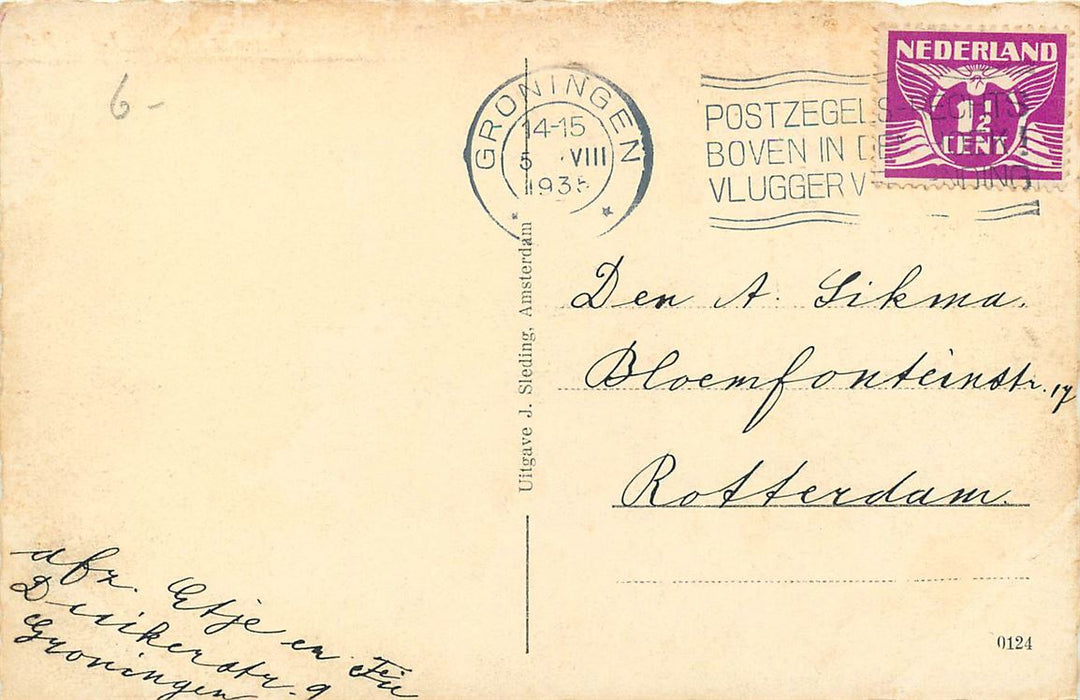 6-
GRONINGEN
14-15
5 VIII
1935
POSTZEGELS-RECHTS
BOVEN IN DEN HOEK!
VLUGGER VERZENDING
NEDERLAND
1½
CENT
Uitgave J. Sleding, Amsterdam
Den A. Sikma.
Bloemfonteinstr. 17
Rotterdam.
afz. Etje en
Duikerstr. 9
Groningen
0124